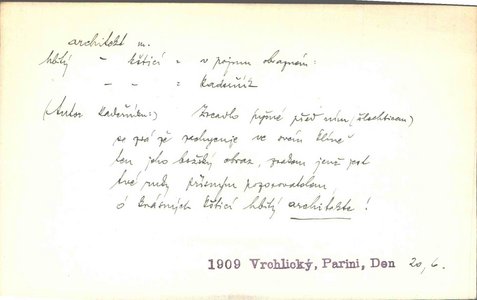 architekt m.
hbitý – kšticí = v pojmu obrazném:
– – = kadeřník
(Autor kadeřníku:) Zrcadlo pyšné před ním (šlechticem)
se zas zachycuje ve svém klíně
ten jeho božský obraz, zrakem jenž jest
tvé ruky přísným pozorovatelem,
ó krásných kšticí hbitý architekte!
1909 Vrchlický, Parini, Den 20, 6.